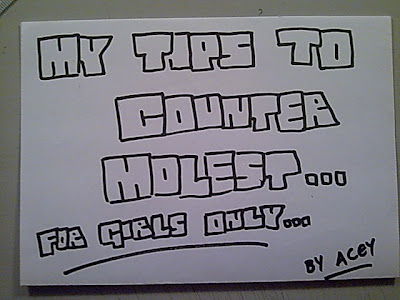 MY TIPS TO
COUNTER
MOLEST...
FOR GIRLS ONLY...
BY ACEY